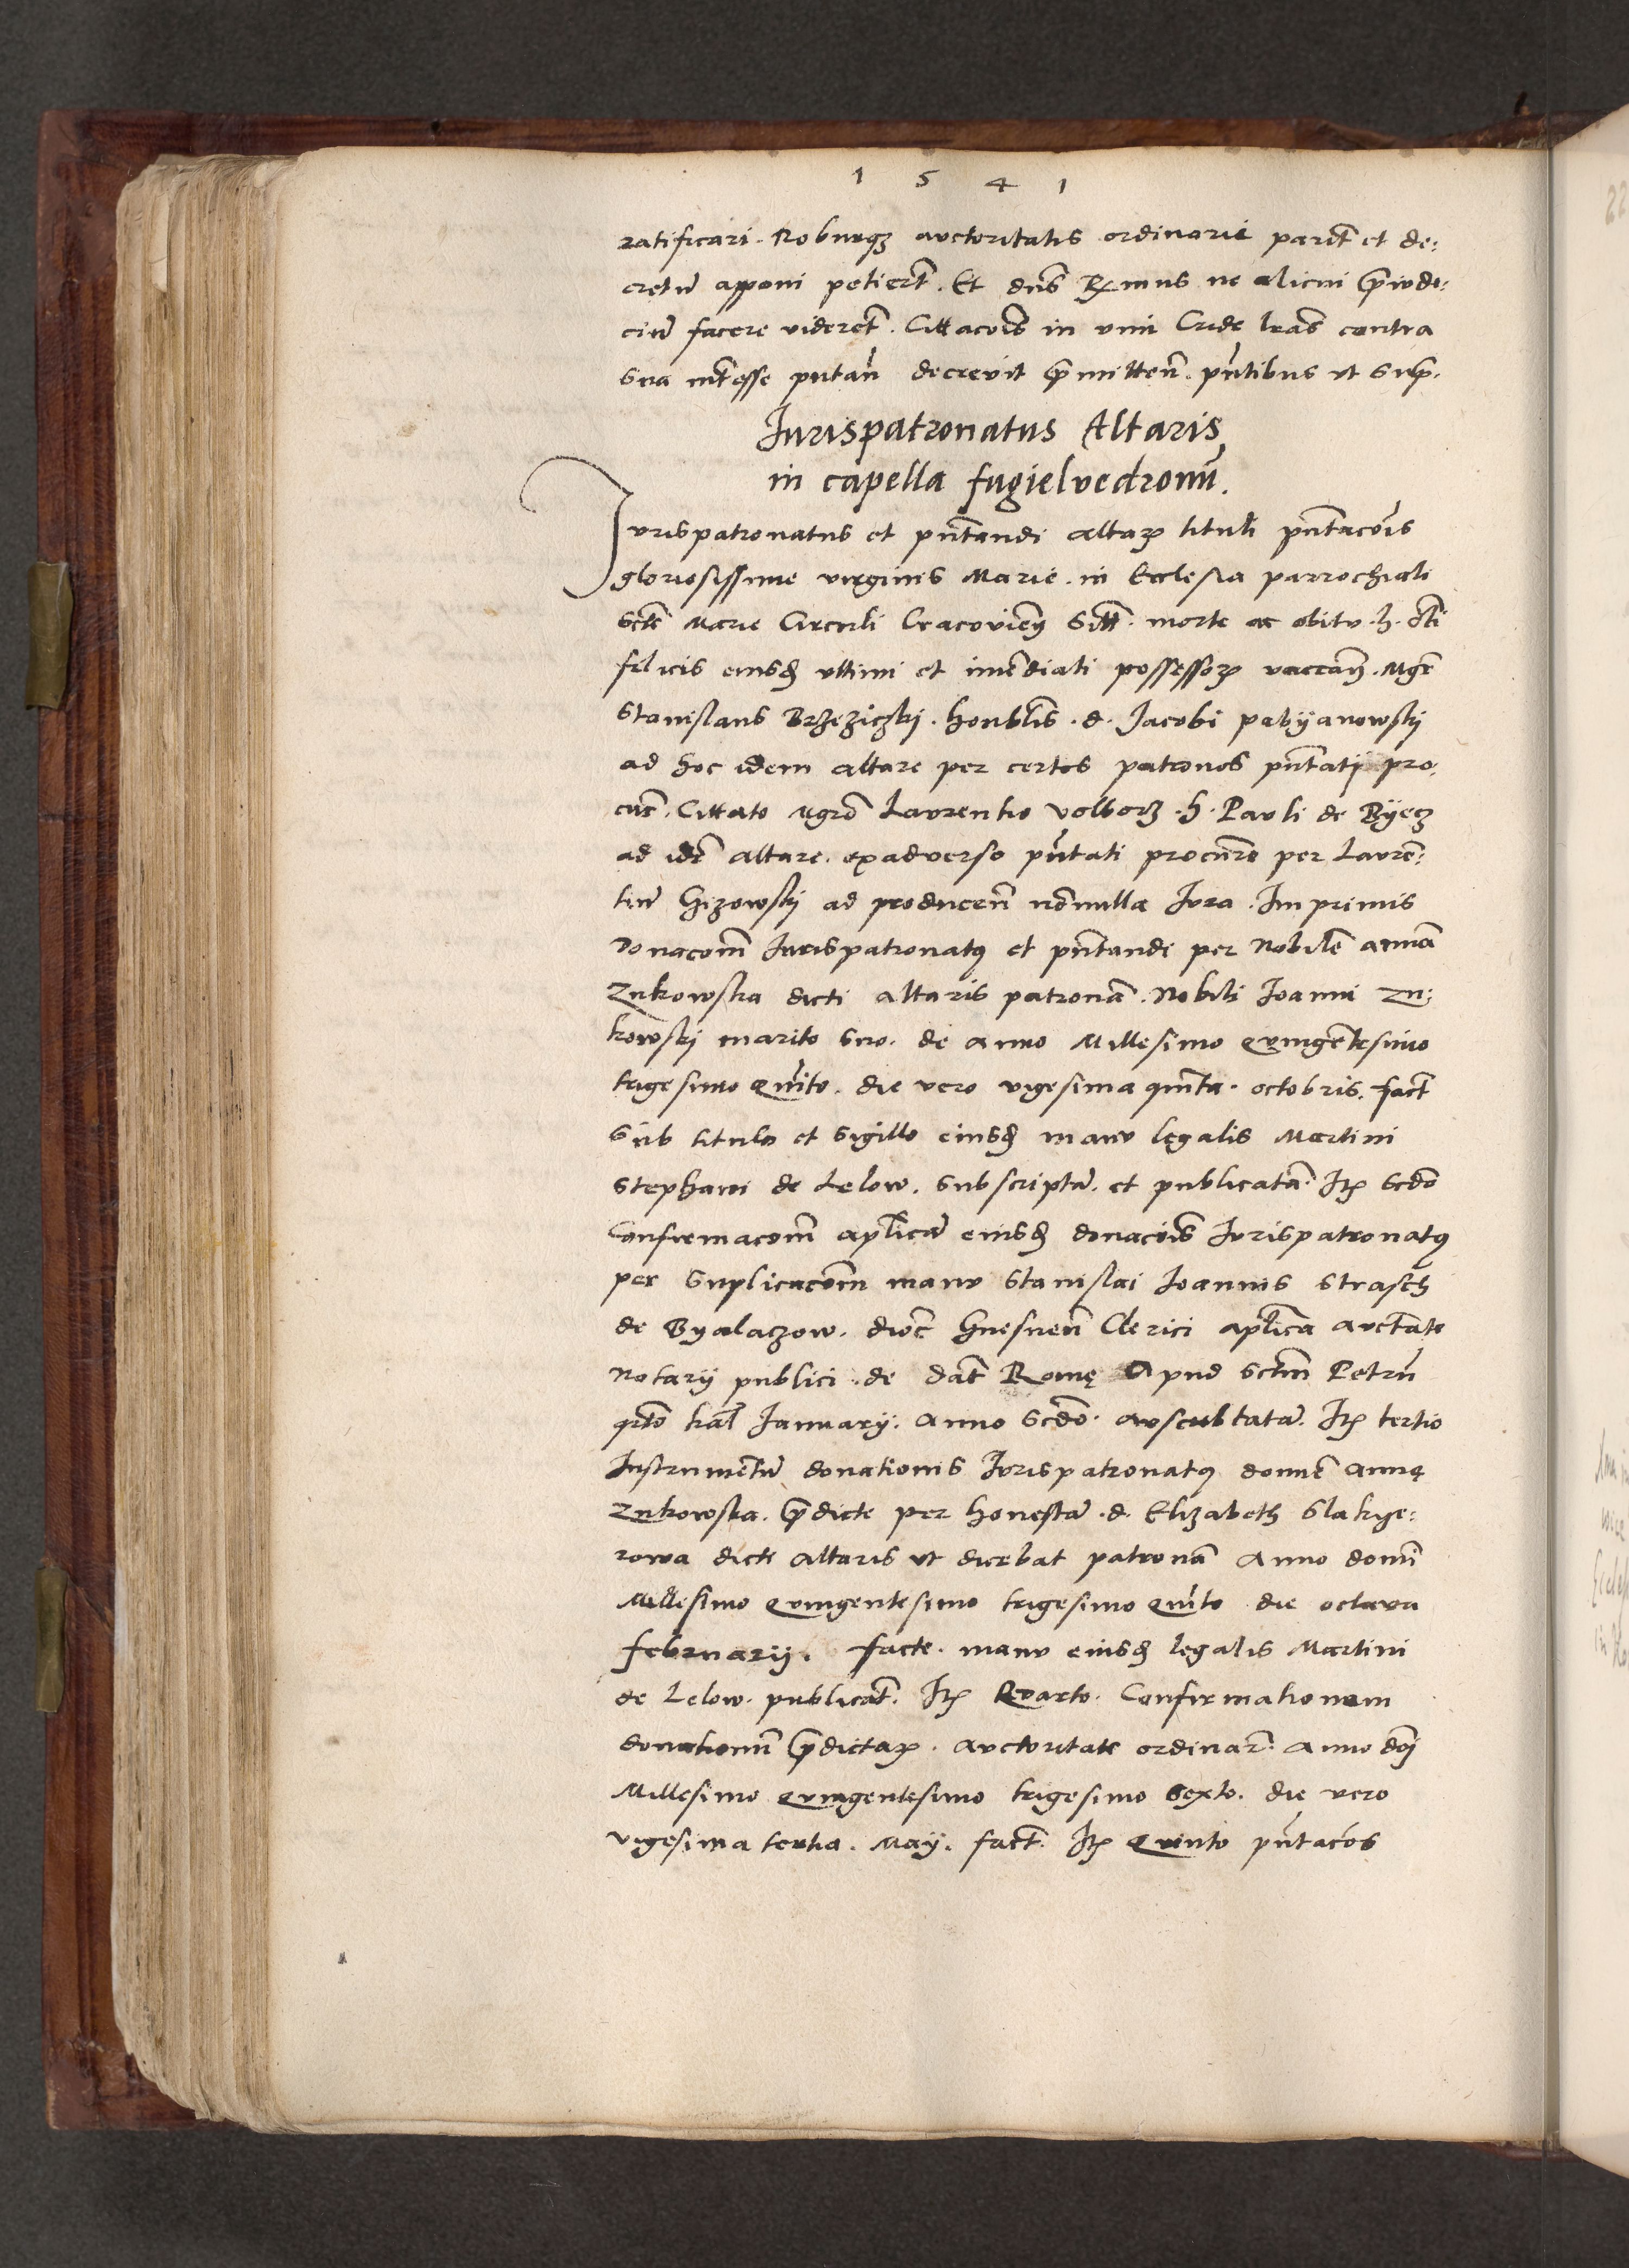 1 5 4 1
ratificari. Roburqꝫ auctoritatis ordinarie parit̄ et de:
cretū apponi petiert̄. Et dn̄s Rx̄mus ne alicui p̄iudi:
ciū facere videret̄. Cittacōis in vim Cride lr̄as contra
sua intēsse putan̄ decrevit p̄mitten̄. pn̄tibus vt sup̄.
Jurispatronatus Altaris
in capella fugielvedronū.
Jurispatronatus et pn̄tandi altaꝝ tituli pn̄tacōis
gloriosissime virginis Marie. in Ecclesia parrochiali
sctē Marie Circuli Cracovien̄ sitt̄. morte ac obitu. h. ōli
felicis eiusd̄ ultimi et imēdiati possessoꝝ vaccan̄. Mgr̄
Stanislaus Brzeziczki. honblīs. d. Jacobi pabyanowski
ad hoc idem altare per certos patronos pn̄tati pro:
cur̄. Cittato Mgrō Laurentio Volborz. h. Pauli de Byecz
ad idē altare. exadverso pn̄tati procurē per Laurē:
tiū Gizowski ad producen̄ nōnulla Jura. Imprimis
Donacōm Jurispatronatꝰ et pn̄tandi per Nobilē annā
Zukowska dicti altaris patronā. Nobili Joanni Zu:
kowski marito suo. de anno Millesimo quingētesimo
trigesimo quīto. die vero vigesima quīta. octobris. fact̄
sub titulo et sigillo eiusd̄ manu legalis Martini
Stephani de Lelow. subscriptā. et publicatā. Itꝫ scdō
Confirmacōm aplīcā eiusd̄ donacōis Jurispatronatꝰ
per suplicacōm manu Stanislai Joannis Strasch
de Byalaczow. dioc̄ Gnesnen̄ Clerici aplīca auctate
Notarij publici. de dat̄ Romę Apud sctm̄ Petrū
qrto kal̄ Januarij. Anno scdō. auscultatā. Itꝫ tertio
Instrumētū donationis Jurispatronatꝰ domē annę
Zukowska. p̄dicte per honestā. d. Elizabeth Slakye:
rowa dicti altaris vt dicebat patronā Anno domī
Millesimo quingentesimo trigesimo quīto die octava
februarij. facte. manu eiusd̄ legalis Martini
de Lelow. publicat̄. Itꝫ Quarto. Confirmationem
donationū p̄dictaꝝ. auctoritate ordinar̄. Anno dnī
Millesimo quingentesimo trigesimo sexto. die vero
vigesima tertia. Maij. fact̄. Itꝫ Quinto pn̄tacōs